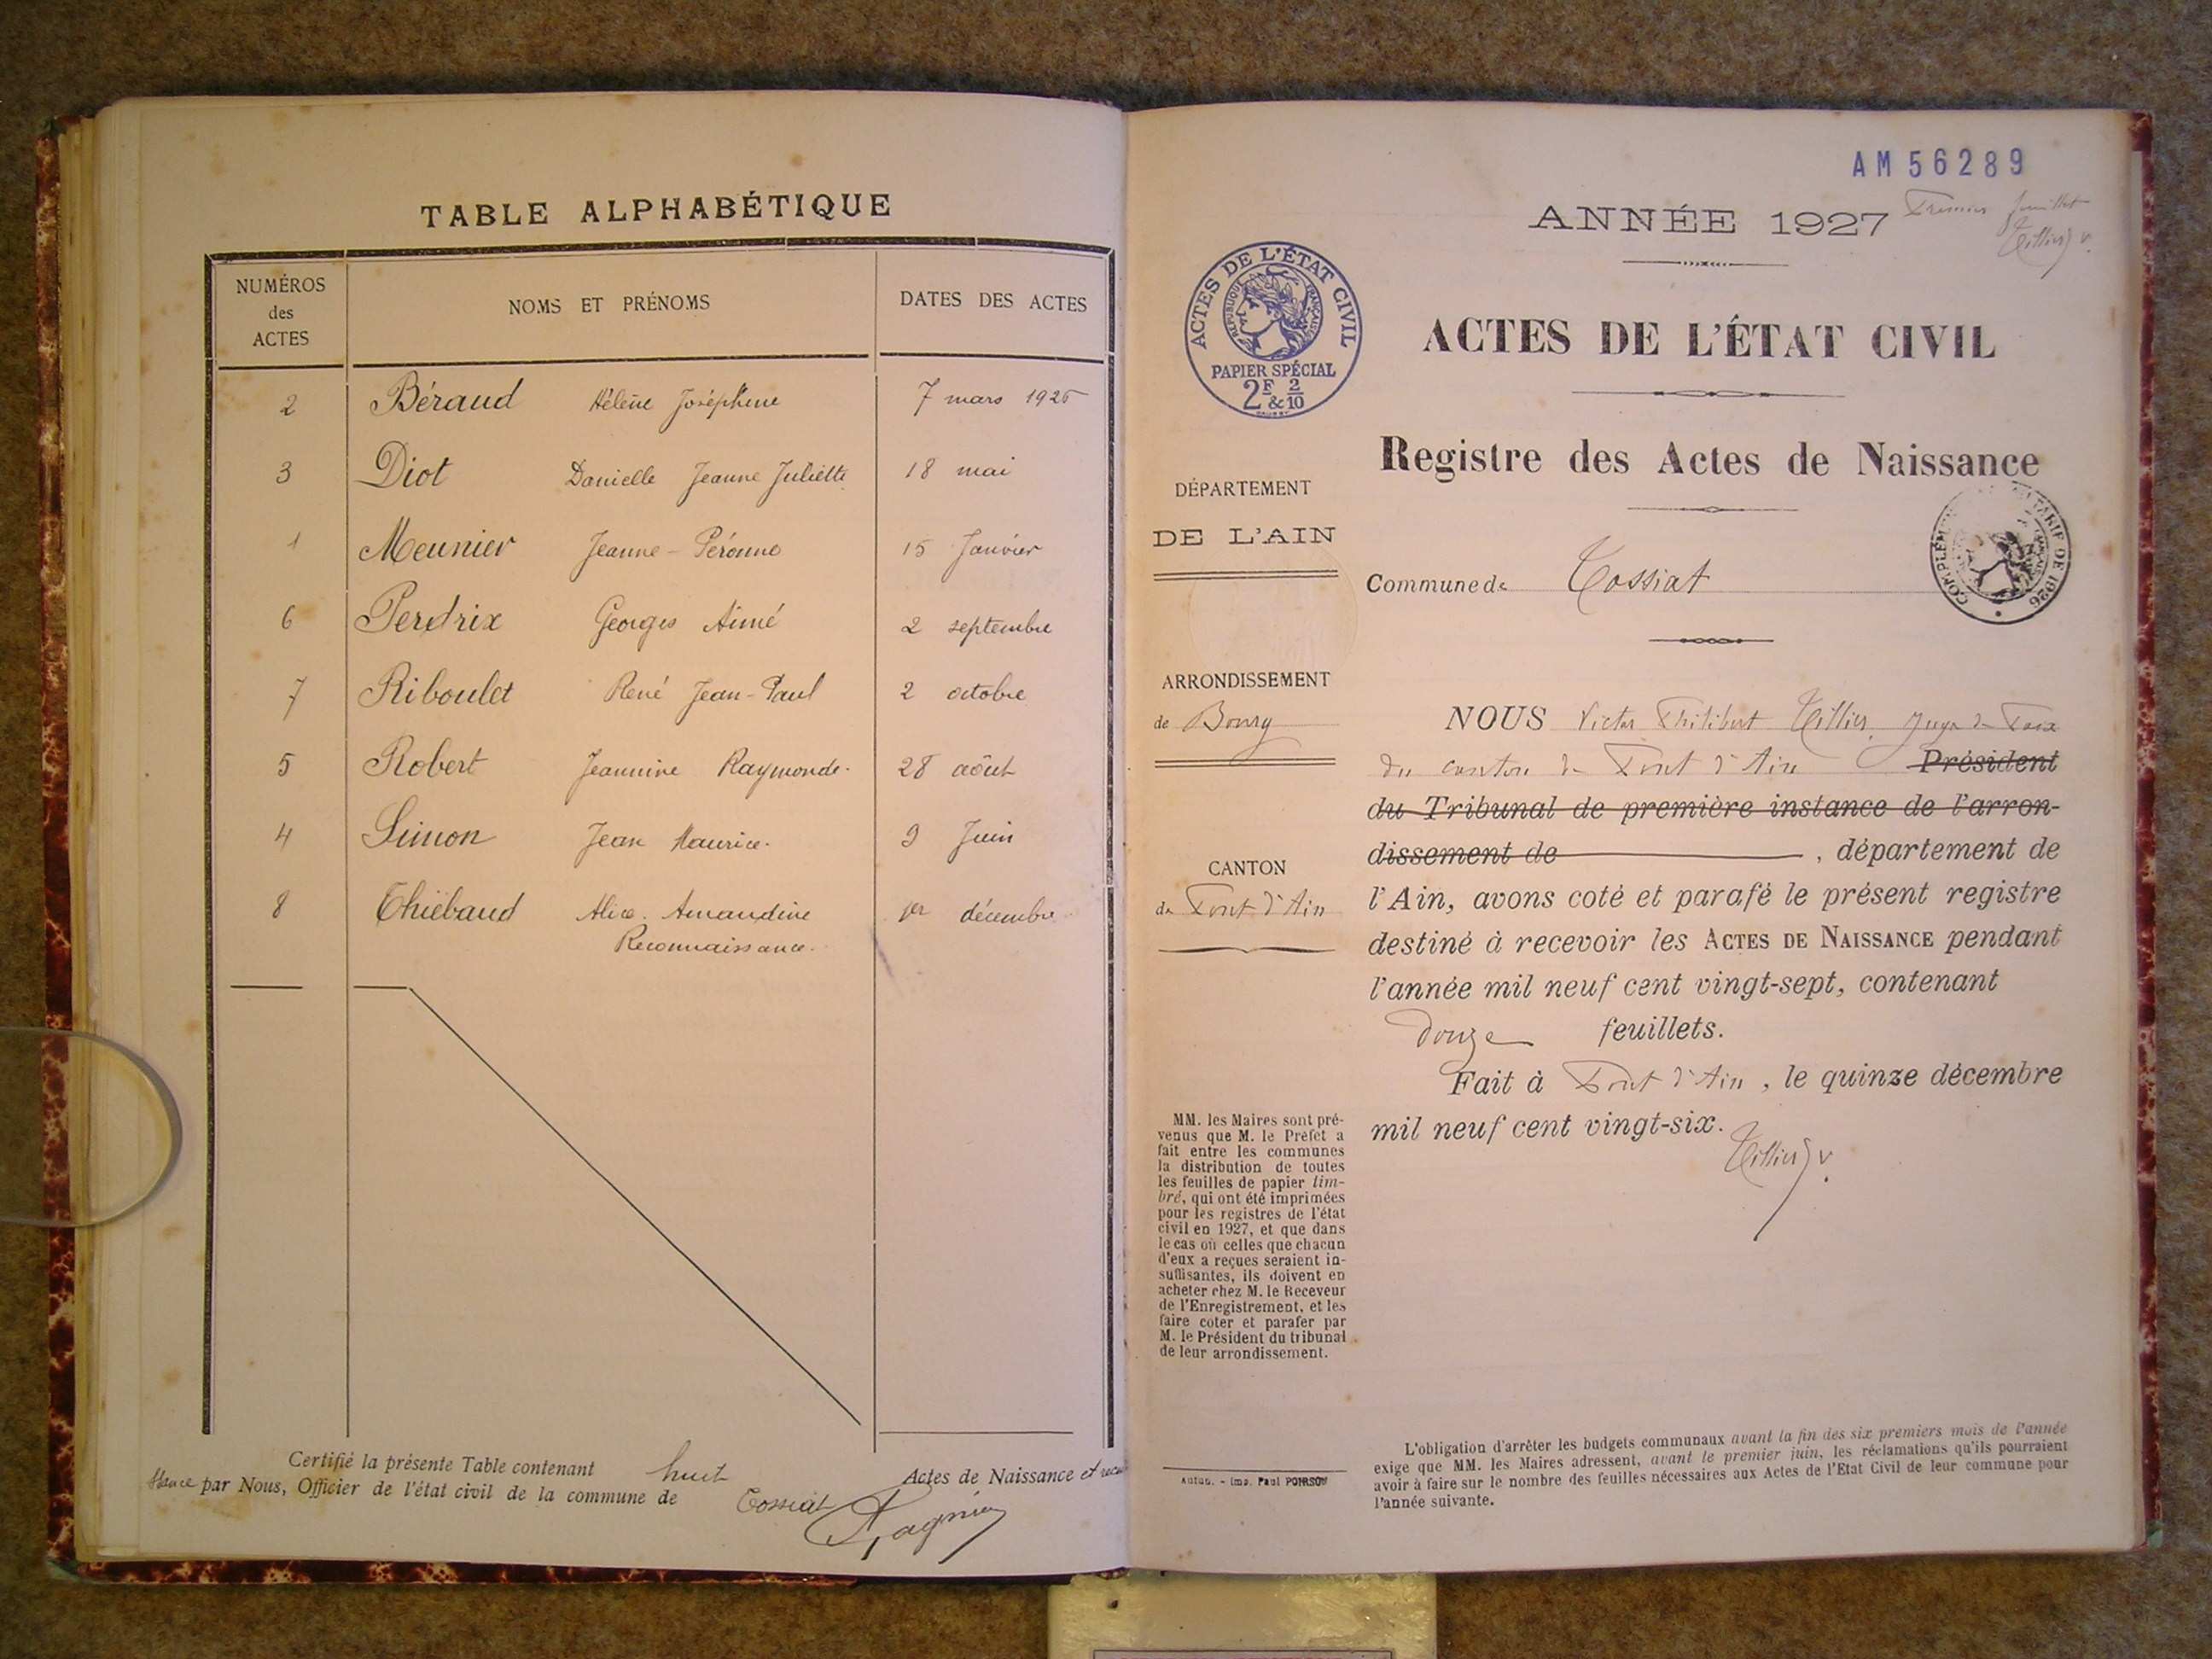 TABLE ALPHABÉTIQUE
NUMÉROS
des
ACTES
NOMS ET PRÉNOMS
DATES DES ACTES
2 Béraud Hélène Joséphine 7 mars 1926
3 Diot Danielle Jeanne Juliette 18 mai
1 Meunier Jeanne-Péronne 15 Janvier
6 Perdrix Georges Aimé 2 septembre
7 Riboulet René Jean-Paul 2 octobre
5 Robert Jeannine Raymonde. 28 août
4 Simon Jean Maurice. 9 Juin
8 Thiébaud Alice. Amandine 1er décembre
Reconnaissance.
Certifié la présente Table contenant huit Actes de Naissance et recon
par Nous, Officier de l'état civil de la commune de Tossiat
AM 56289
ANNÉE 1927 Premier feuillet
Tillier V.
ACTES DE L'ÉTAT CIVIL
RÉPUBLIQUE FRANÇAISE
PAPIER SPÉCIAL
2F & 2/10
ACTES DE L'ÉTAT CIVIL
Registre des Actes de Naissance
TARIF DE 1926
DÉPARTEMENT
DE L'AIN
Commune de Tossiat
ARRONDISSEMENT
de Bourg
CANTON
de Pont d'Ain
NOUS Victor Philibert Tillier, Juge de Paix
du canton de Pont d'Ain Président
du Tribunal de première instance de l'arron-
dissement de , département de
l'Ain, avons coté et parafé le présent registre
destiné à recevoir les ACTES DE NAISSANCE pendant
l'année mil neuf cent vingt-sept, contenant
douze feuillets.
Fait à Pont d'Ain, le quinze décembre
mil neuf cent vingt-six.
Tillier V.
MM. les Maires sont pré-
venus que M. le Préfet a
fait entre les communes
la distribution de toutes
les feuilles de papier tim-
bré, qui ont été imprimées
pour les registres de l'état
civil en 1927, et que dans
le cas où celles que chacun
d'eux a reçues seraient in-
suffisantes, ils doivent en
acheter chez M. le Receveur
de l'Enregistrement, et les
faire coter et parafer par
M. le Président du tribunal
de leur arrondissement.
Autun. - Imp. Paul
L'obligation d'arrêter les budgets communaux avant la fin des six premiers mois de l'année
exige que MM. les Maires adressent, avant le premier juin, les réclamations qu'ils pourraient
avoir à faire sur le nombre des feuilles nécessaires aux Actes de l'Etat Civil de leur commune pour
l'année suivante.